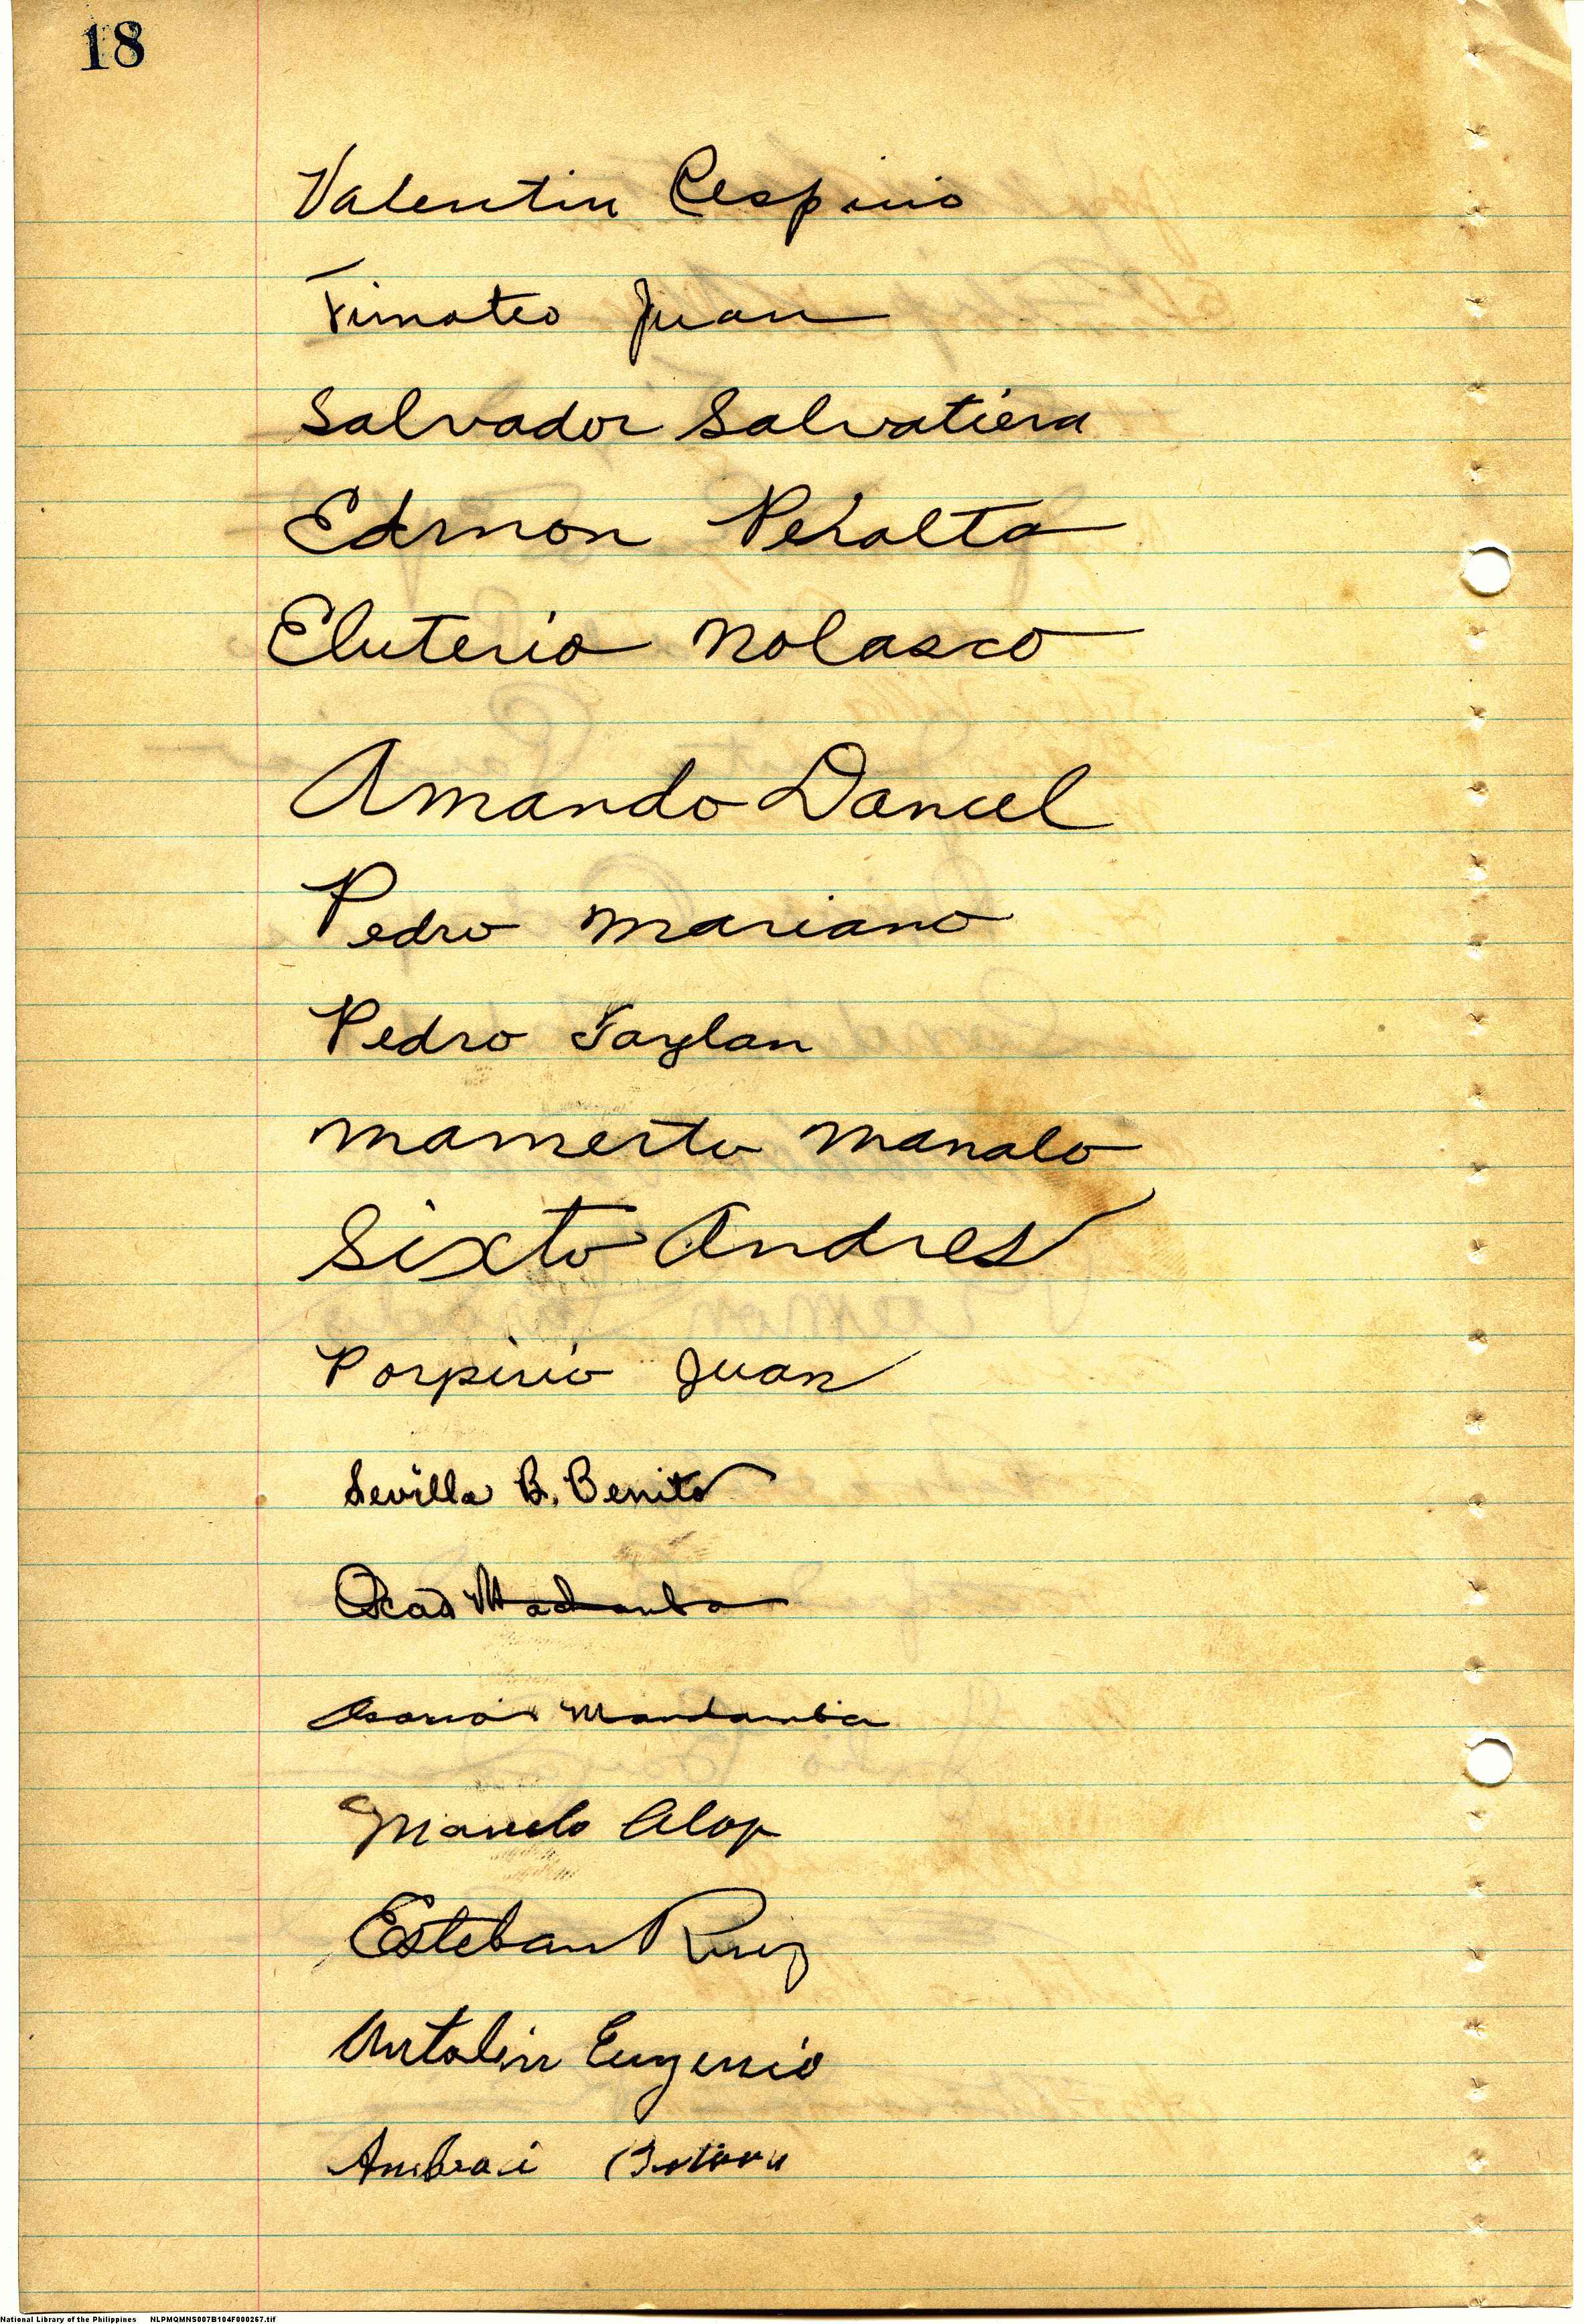 18
Valentin Cespirio
Timoteo Juan
Salvador Salvatiera
Edmon Peralta
Eluterio Nolasco
Amando Daniel
Pedro Mariano
Pedro Taylan
Mamerto Manalo
Sixto Andres
Porpirio Juan
Sevilla B. Benito
Madamba
Mandamba
Alop
Esteban Ruiz
Antolin Eugenio
National Library of the Philippines NLPMQMNS007B104F000267.tif